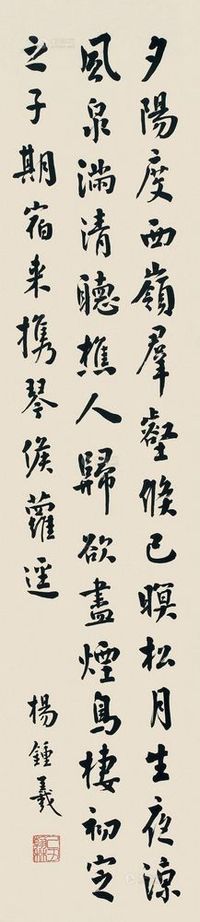 夕陽度西嶺羣壑倐已暝松月生夜涼
風泉滿清聽樵人歸欲盡煙鳥棲初定
之子期宿来攜琴候蘿逕
楊鍾羲